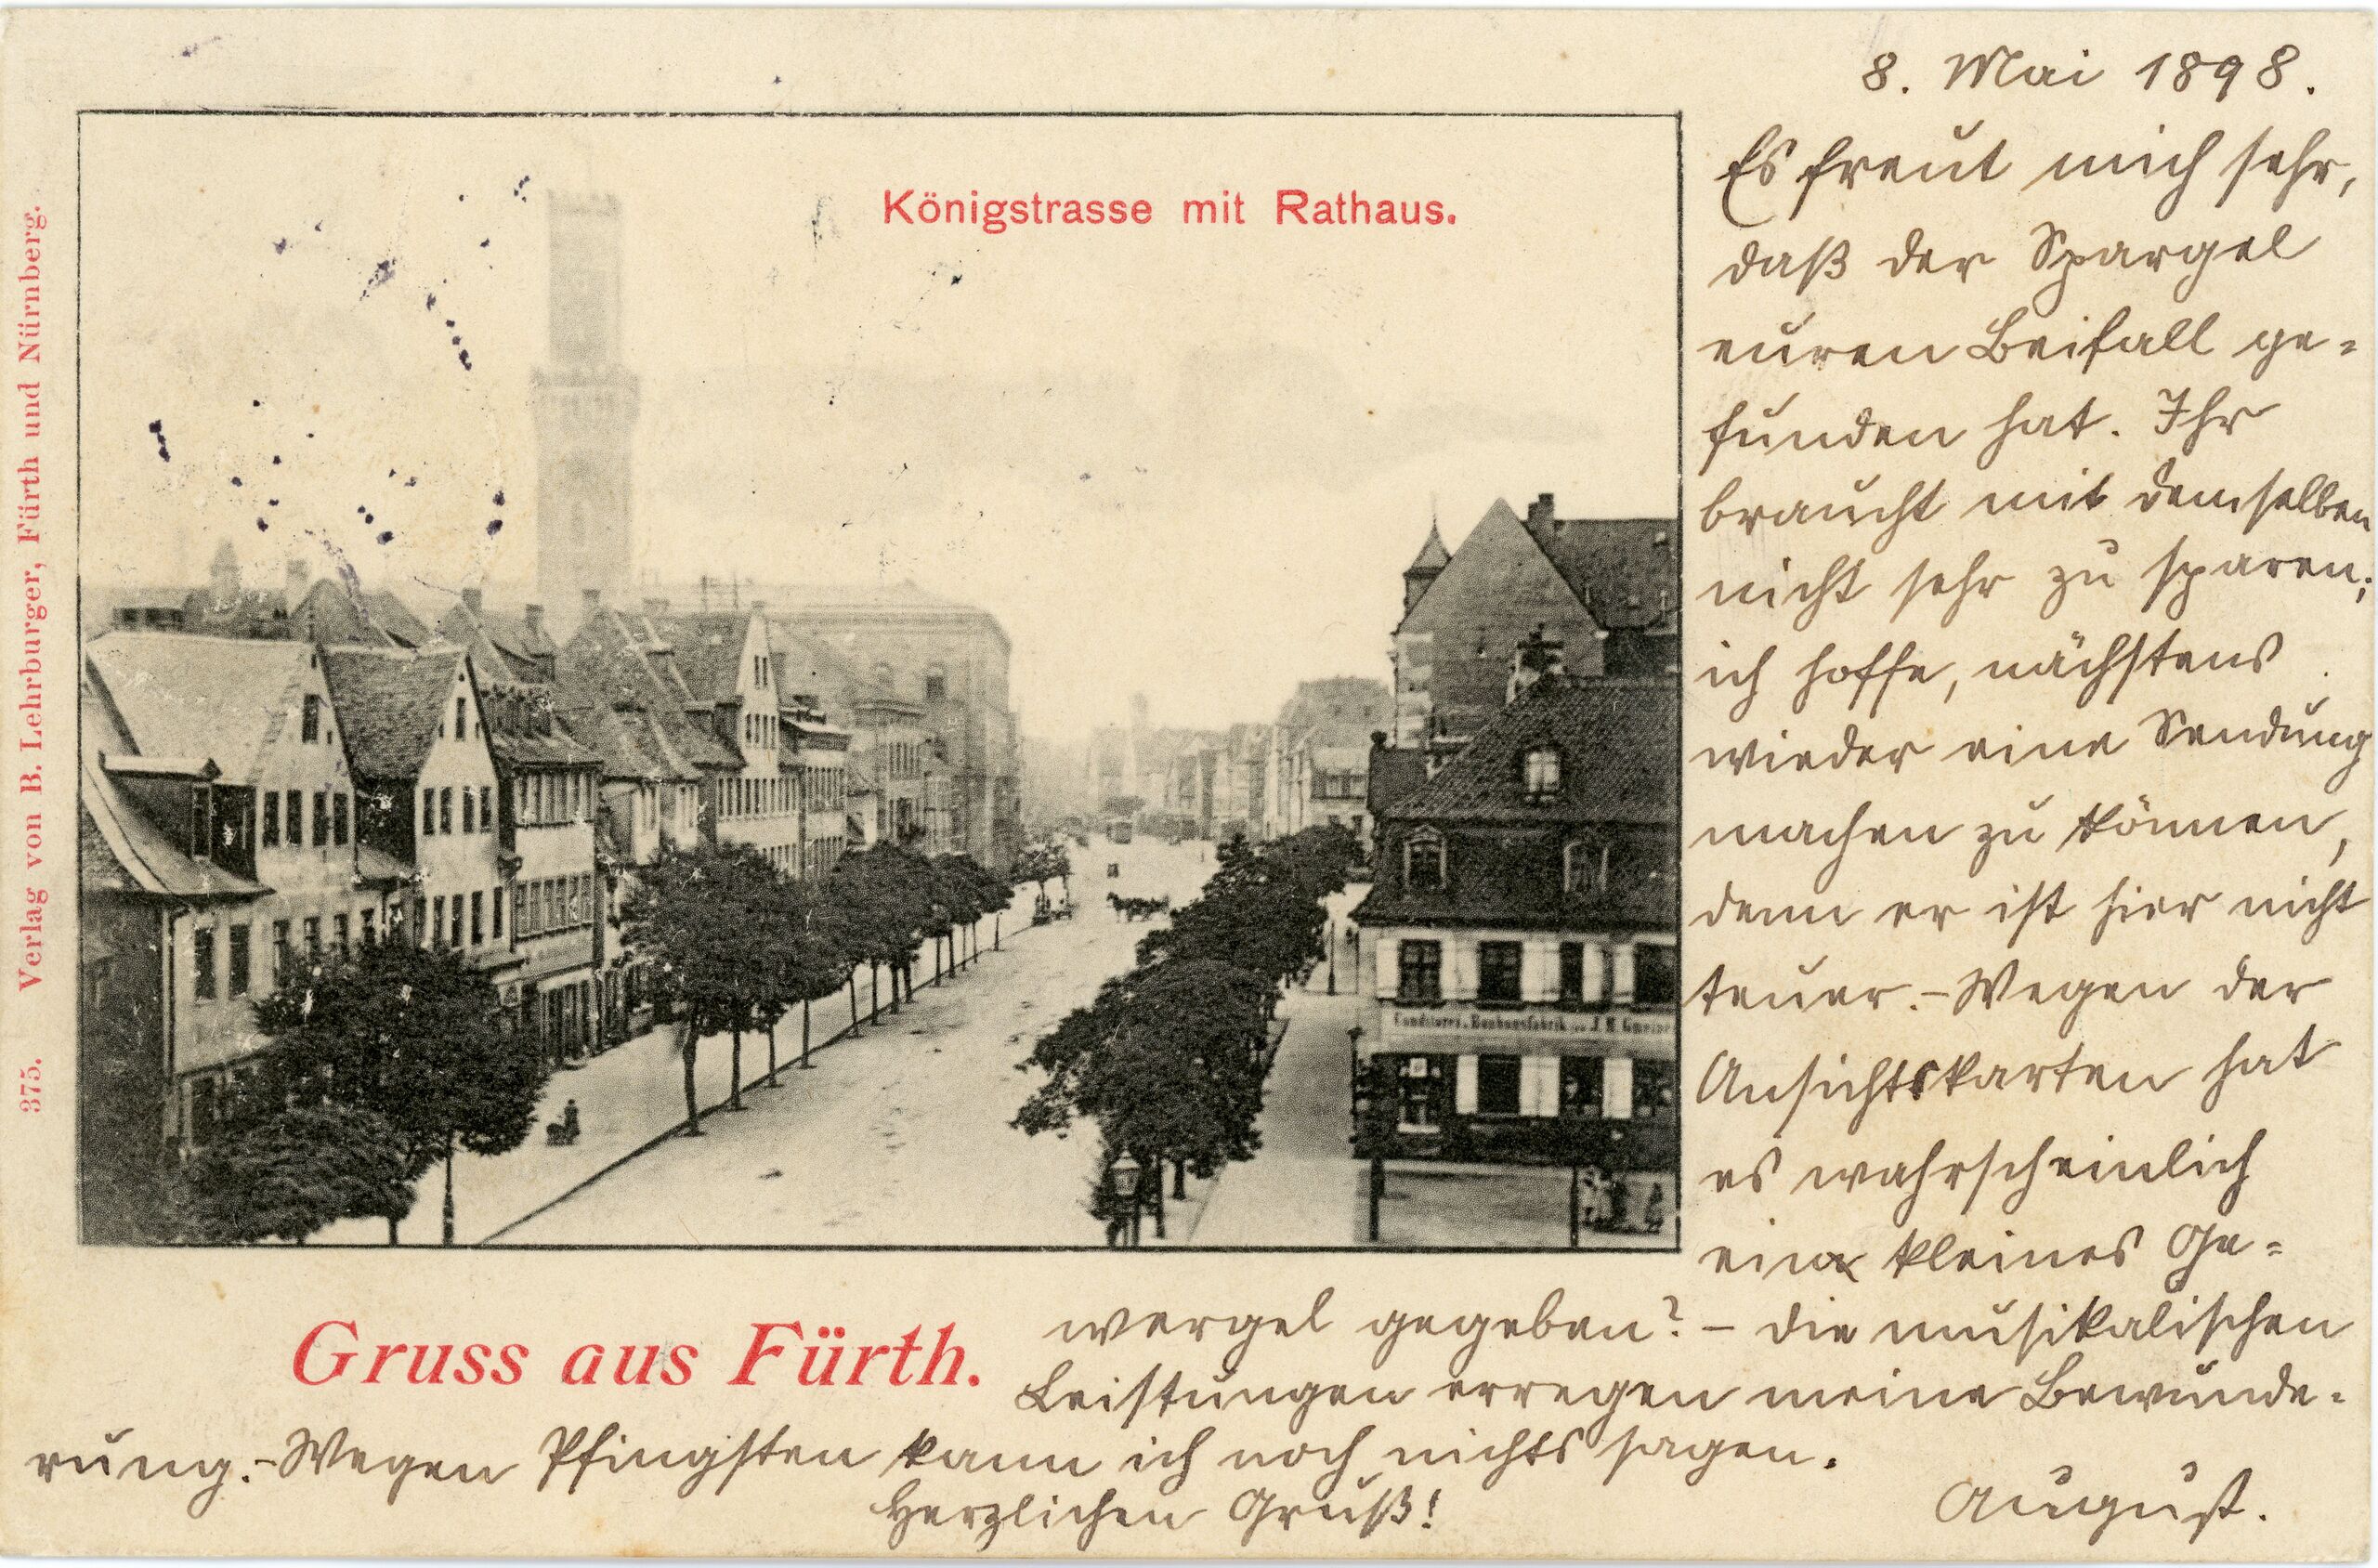 8. Mai 1898.
Es freut mich sehr,
daß der Spargel
euren Beifall ge=
funden hat. Ihr
braucht mit demselben
nicht sehr zu sparen;
ich hoffe, nächstens
wieder eine Sendung
machen zu können,
denn er ist hier nicht
teuer.-Wegen der
Ansichtskarten hat
es wahrscheinlich
ein kleines Ge=
wergel gegeben? - die musikalischen
Leistungen erregen meine Bewunde=
rung.-Wegen Pfingsten kann ich noch nichts sagen.
Herzlichen Gruß!
August.
Königstrasse mit Rathaus.
Gruss aus Fürth.
375. Verlag von B. Lehrburger, Fürth und Nürnberg.